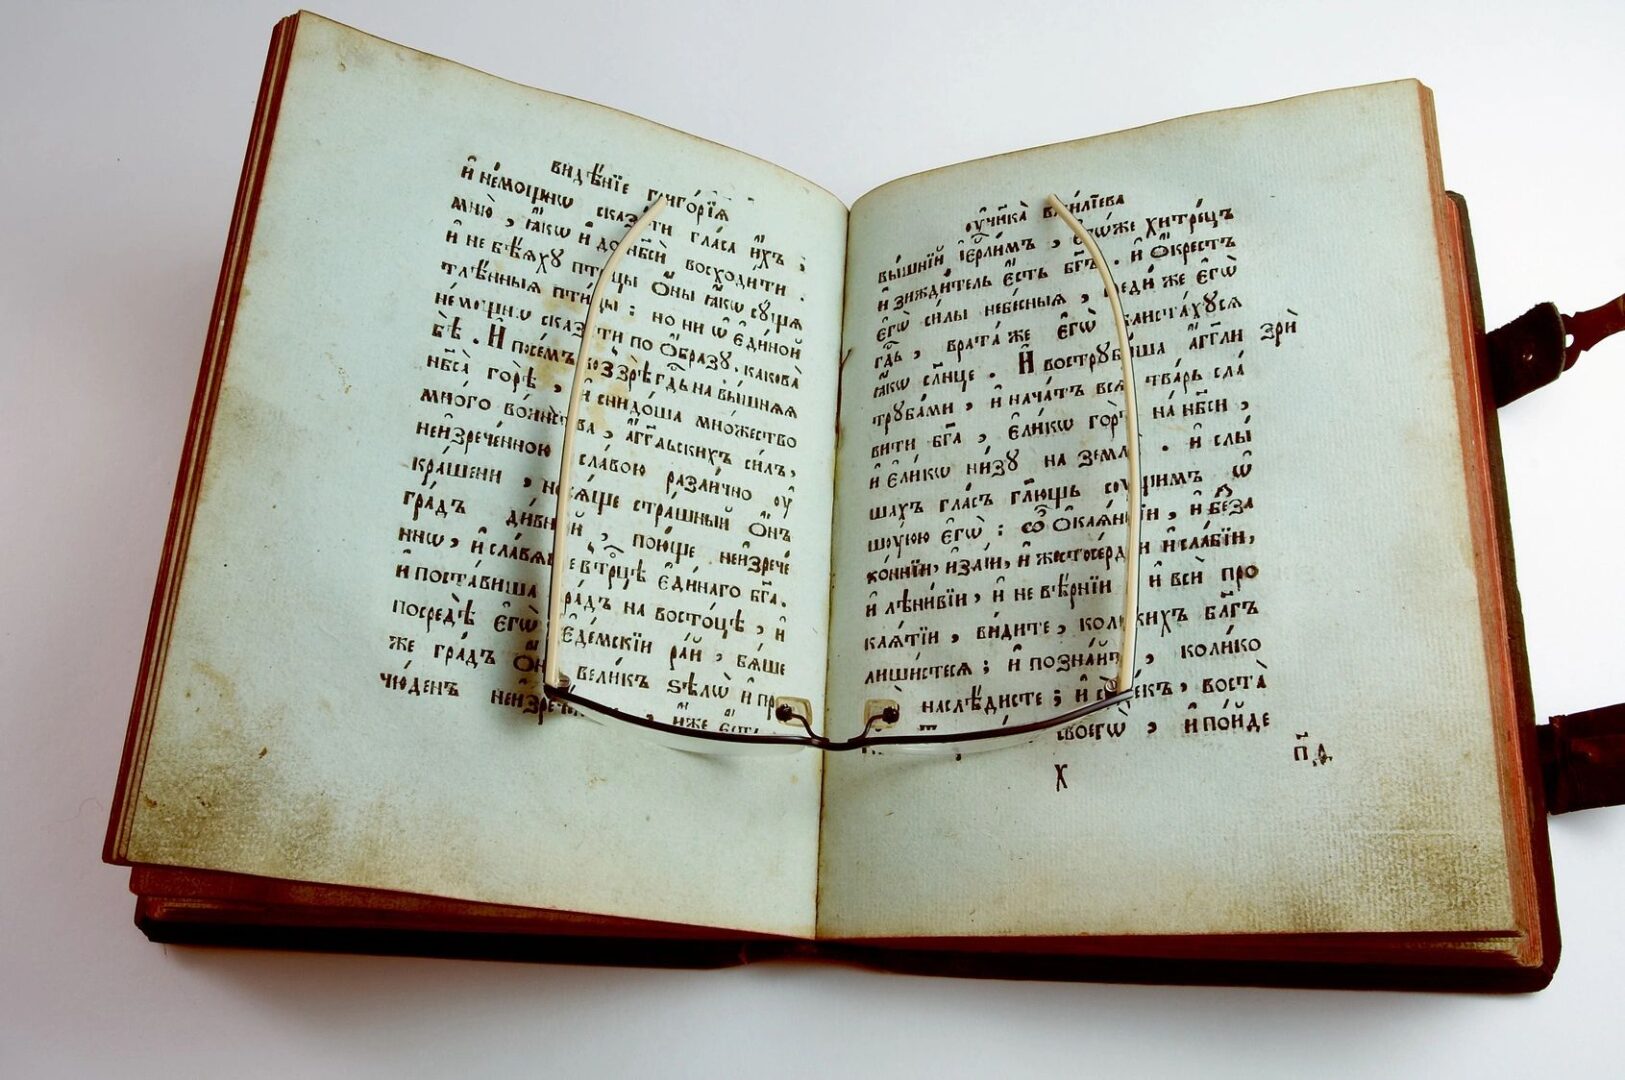 видѣ́нїе григо́рїѧ
и҆ не́мощнѡ сказа́ти гла́са и҆́хъ ;
мню̀ , ꙗ҆́кѡ и҆ до нб҃сѝ восходи́ти .
и҆ не бѣ́ѧхꙋ пти́цы ѻ҆́ны ꙗ҆́кѡ сꙋ́щаѧ
тлѣ́нныѧ пти́цы : но ни ѿ є҆ди́ной
не́мощно сказа́ти по ѻ҆́бразꙋ . какова̀
бѣ̀ . И҆ посе́мъ воззрѣ̀ гдⷭ҇ь на вы́шнѧѧ
нб҃са̀ горѣ̀ , и҆ снидо́ша мно́жество
мно́го во́инства , а҆́гг҃льскихъ си́лъ ,
неизрече́нною сла́вою разли́чно ᲂу҆
кра́шени , носѧ́ще стра́шный ѻ҆́нъ
гра́дъ ди́вный , пою́ще неизрече́
ннѡ , и҆ сла́вѧще в трⷪ҇цѣ є҆ди́наго бг҃а .
и҆ поста́виша гра́дъ на восто́цѣ , и҆
посредѣ̀ є҆гѡ̀ є҆де́мскїи ра́й , бѧ́ше
же гра́дъ ѻ҆́нъ вели́къ ѕѣлѡ̀ и҆ пр
чю́денъ неизрече́ , и҆́же є҆́сть
ᲂу҆чн҃ика̀ васи́лїева
вы́шнїй і҆ерⷭ҇ли́мъ , є҆мꙋ́же хитре́цъ
и҆ зижди́тель є҆́сть бг҃ъ . и҆ ѻ҆́крестъ
є҆гѡ̀ си́лы небе́сныѧ , среди́ же є҆гѡ̀
гдⷭ҇ь , врата́ же є҆гѡ̀ блиста́хꙋсѧ
ꙗ҆́кѡ сл҃нце . И҆ вострꙋби́ша а҆́гг҃ли
трꙋба́ми , и҆ нача́тъ всѧ̀ тва́рь сла́
вити бг҃а , є҆ли́кѡ горѣ̀ на́ нб҃си ,
и҆ є҆ли́кѡ ни́зꙋ на землѝ . и҆ слы́
шахъ гла́съ гл҃ющь сꙋ́щимъ ѡ҆
шꙋ́юю є҆гѡ̀ : ѽ ѻ҆каѧ́ннїи , и҆ беза
ко́ннїи , и҆зᲂа́їи , и҆ жестосе́рдїи и҆ сла́бїи ,
и҆ лѣни́вїи , и҆ не вѣ́рнїи и҆ всѝ про
каѧ́тїи , ви́дите , коли́кихъ бл҃гъ
лиши́стесѧ ; и҆ позна́йте , коли́ко
наслѣ́дисте ; и҆ се́ рекъ , воста̀
своегѡ̀ , и҆ по́йде
зрѝ
х
п҃д